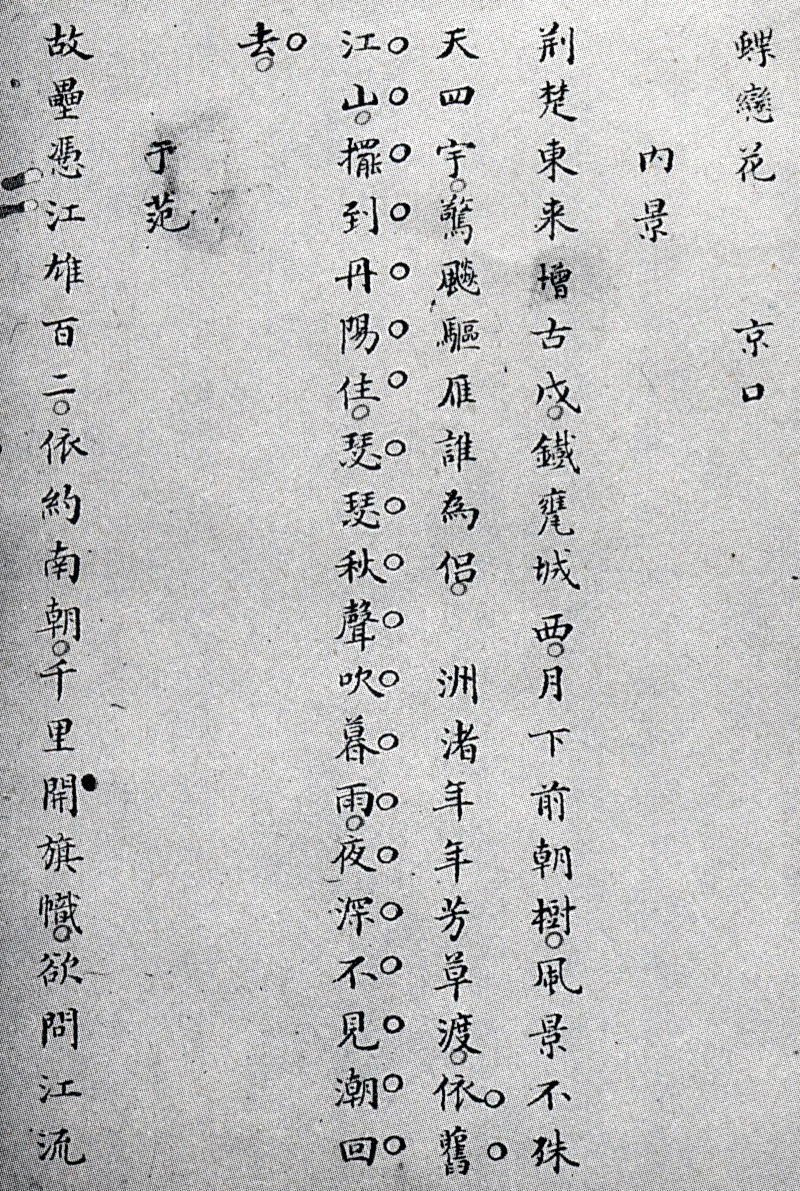 蝶戀花 京口
内景
荆楚東来增古戍鐵甕城西月下前朝樹風景不殊
天四宇驚飈驅雁誰為侣 洲渚年年芳草渡依舊
江山擺到丹陽佳瑟瑟秋聲吹暮雨夜深不見潮回
去
于范
故壘憑江雄百二依約南朝千里開旗幟欲問江流